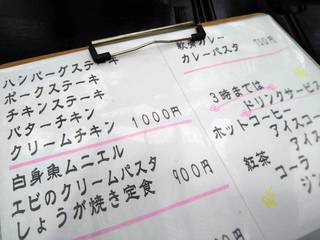 ハンバーグステーキ
ポークステーキ
チキンステーキ
バターチキン
クリームチキン 1000円
白身魚ムニエル
エビのクリームパスタ
しょうが焼き定食 900円
カレー
カレーパスタ 700円
3時までは
ドリンクサービス
ホットコーヒー
アイスコ
紅茶 アイス
コーラ
ジン